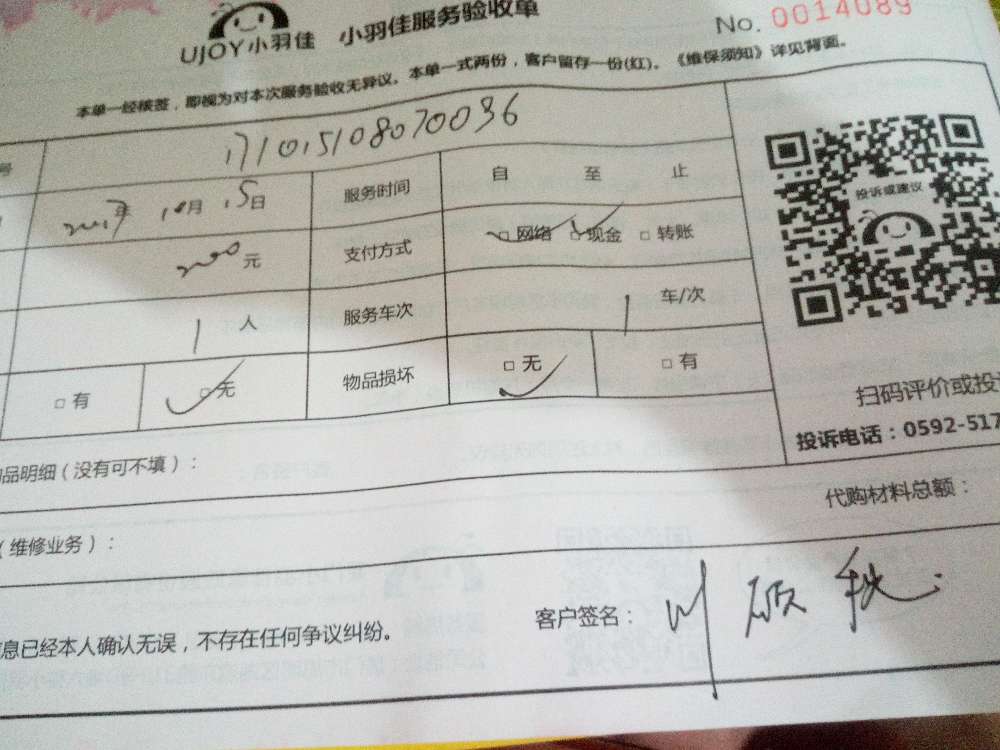 UJOY小羽佳 小羽佳服务验收单 No. 0014089
本单一经核签，即视为对本次服务验收无异议。本单一式两份，客户留存一份(红)。《维保须知》详见背面。
号 171015108070036
2017年 10月 15日 服务时间 自 至 止
200元 支付方式 □网络 □现金 □转账
投诉或建议
1 人 服务车次 1 车/次
□有 □无 物品损坏 □无 □有
扫码评价或投
投诉电话：0592-517
品明细（没有可不填）：
代购材料总额：
（维修业务）：
息已经本人确认无误，不存在任何争议纠纷。 客户签名：